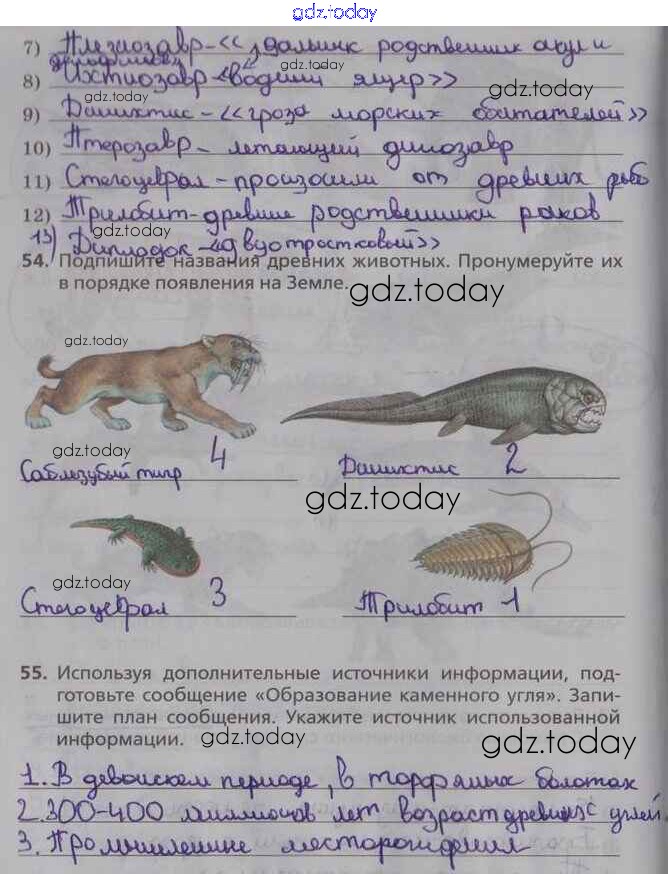 gdz.today
7) Плезиозавр - «дальний родственник акул и
дельфинов
gdz.today
8) Ихтиозавр «водный ящер»
gdz.today
9) Динихтис - «гроза морских обитателей»
10) Птерозавр - летающий динозавр
gdz.today
11) Стегоцефрал - произошли от древних рыб
12) Трилобит - древние родственники раков
13) Диплодок - «двуотростковый»
gdz.today
54. Подпишите названия древних животных. Пронумеруйте их
в порядке появления на Земле.
gdz.today
gdz.today
gdz.today
Саблезубый тигр 4
Динихтис 2
gdz.today
gdz.today
gdz.today
Стегоцефрал 3
Трилобит 1
55. Используя дополнительные источники информации, под-
готовьте сообщение «Образование каменного угля». Запи-
шите план сообщения. Укажите источник использованной
информации.
gdz.today
gdz.today
1. В девонском периоде, в торфяных болотах
2. 300-400 миллионов лет возраст древних углей.
3. Промышленные месторождения